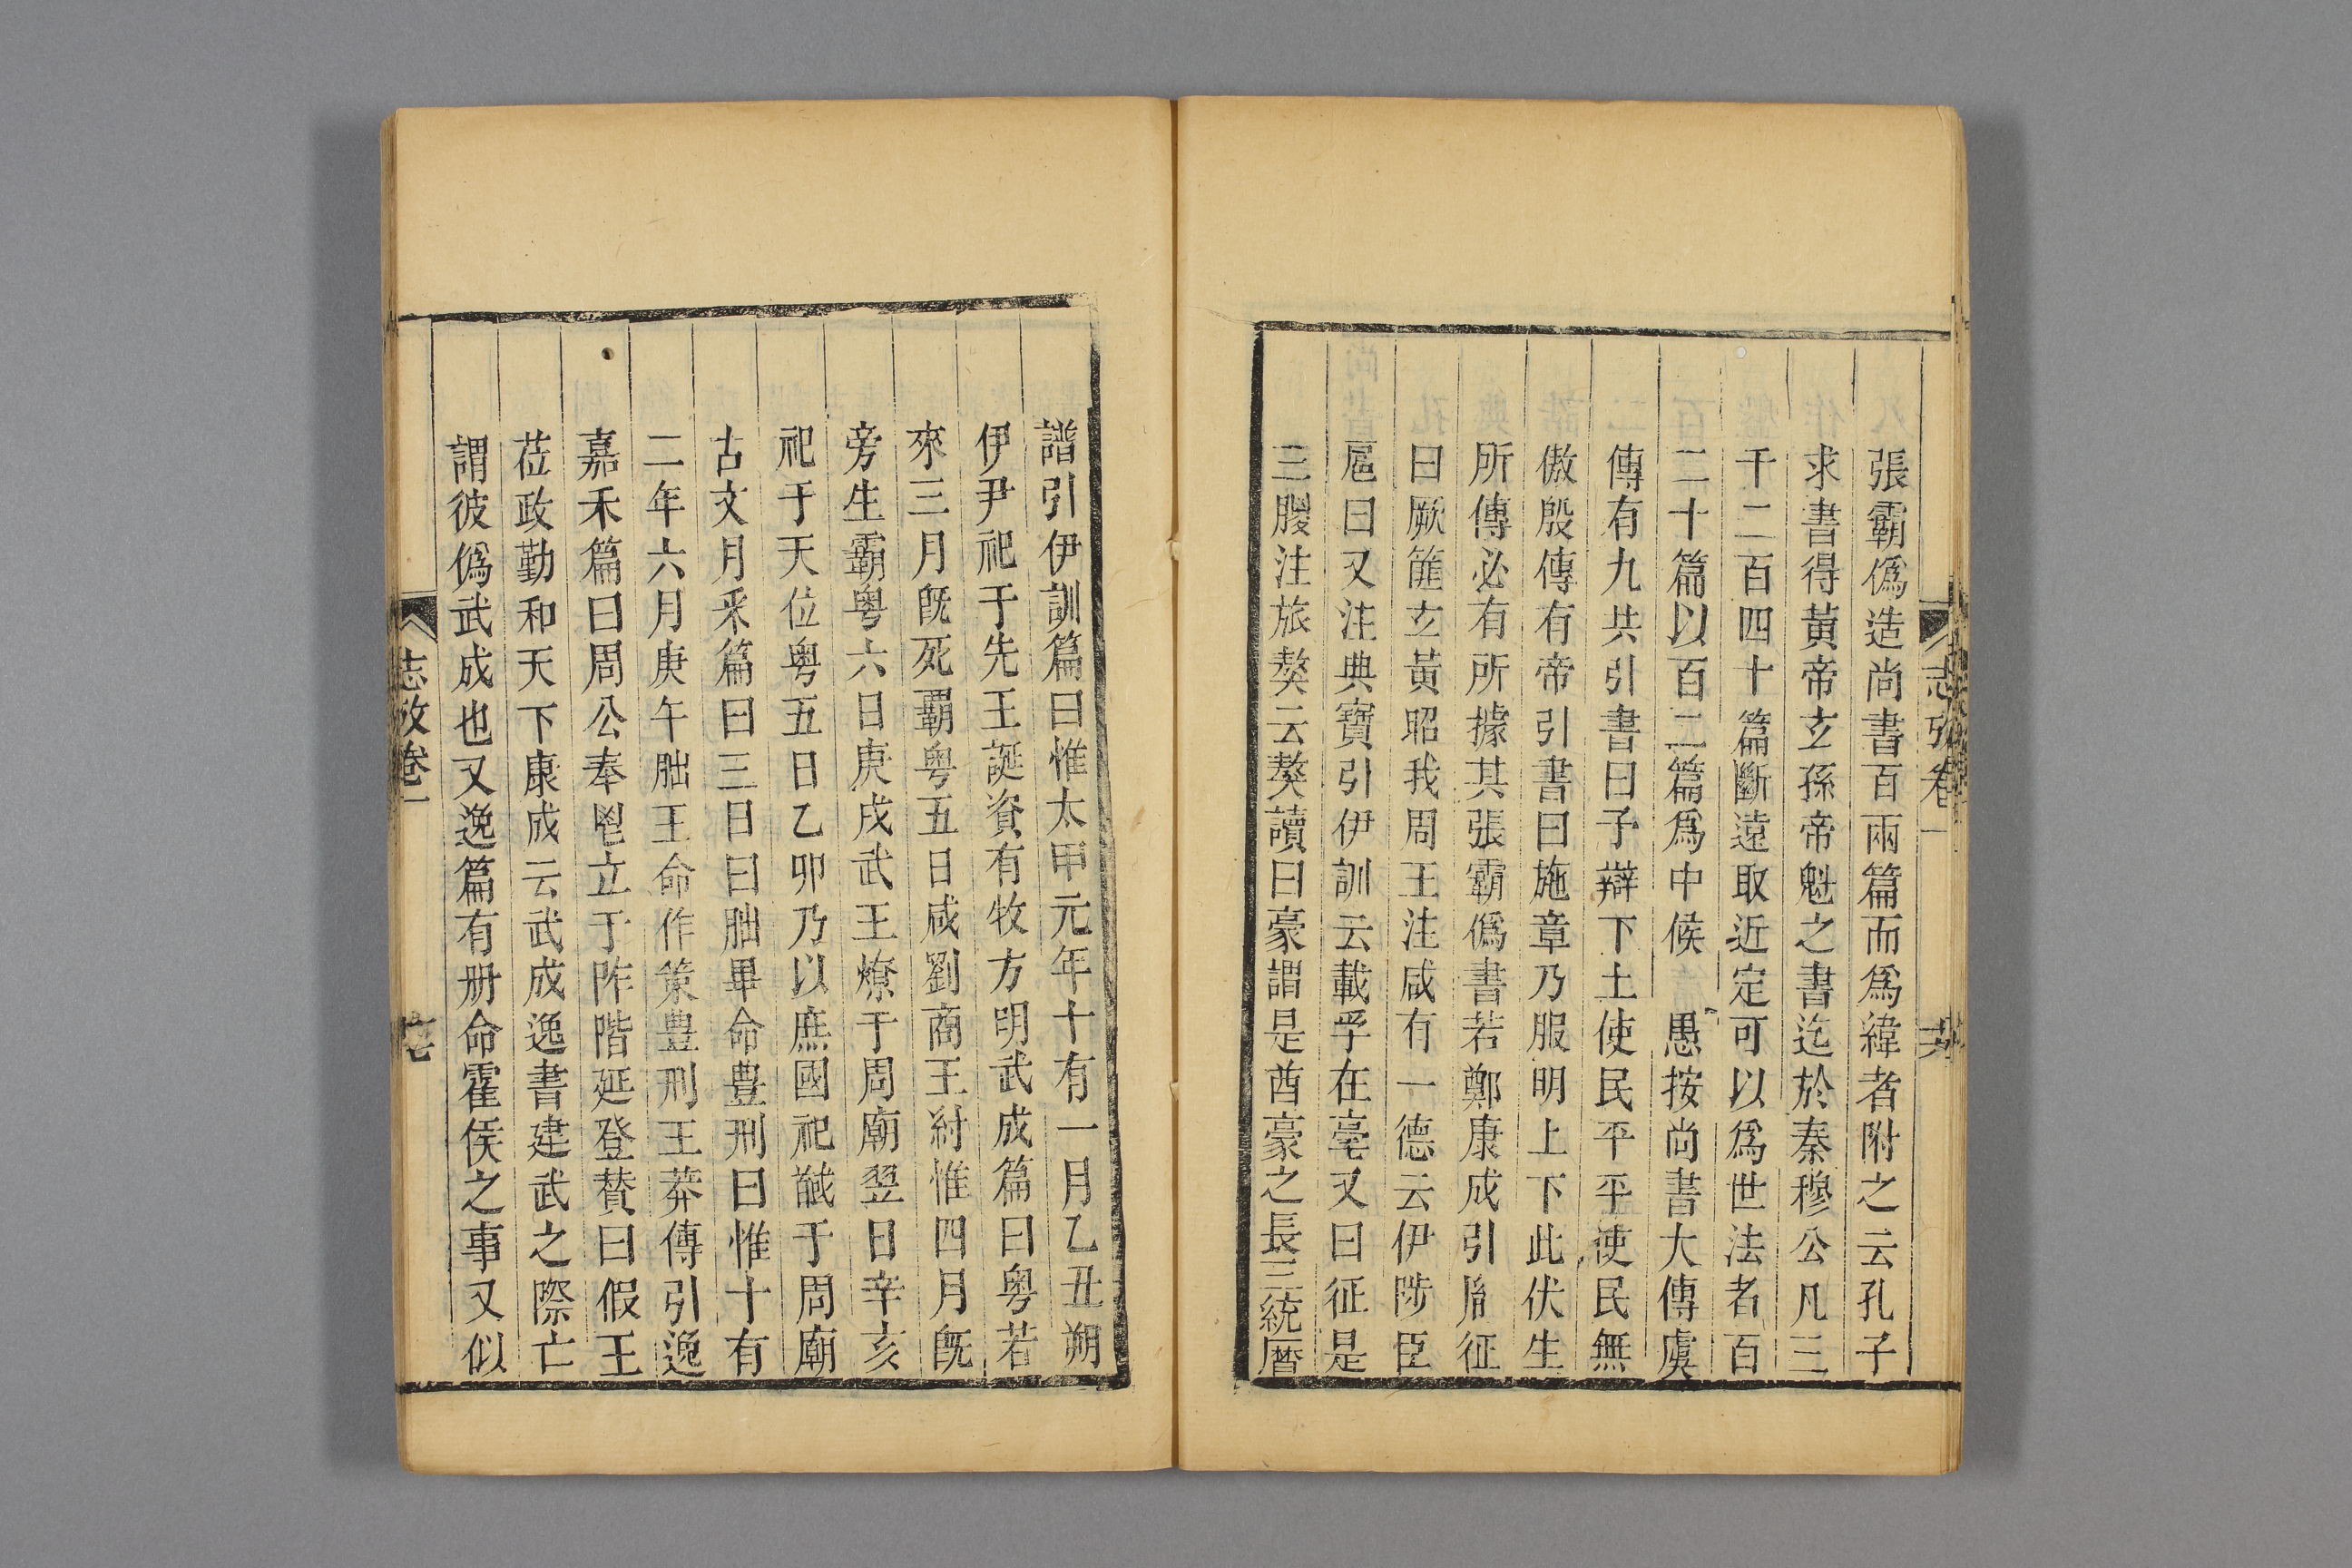 張霸僞造尚書百兩篇而爲緯者附之云孔子
求書得黃帝玄孫帝魁之書迄於秦穆公凡三
千二百四十篇斷遠取近定可以爲世法者百
二十篇以百二篇爲中候 愚按尚書大傳虞
傳有九共引書曰予辯下土使民平平使民無
傲殷傳有帝引書曰施章乃服明上下此伏生
所傳必有所據其張霸僞書若鄭康成引胤征
曰厥篚玄黃昭我周王注咸有一德云伊陟臣
扈曰又注典寶引伊訓云載孚在亳又曰征是
三朡注旅獒云獒讀曰豪謂是酋豪之長三統曆
譜引伊訓篇曰惟太甲元年十有一月乙丑朔
伊尹祀于先王誕資有牧方明武成篇曰粵若
來三月既死霸粵五日咸劉商王紂惟四月既
旁生霸粵六日庚戌武王燎于周廟翌日辛亥
祀于天位粵五日乙卯乃以庶國祀馘于周廟
古文月采篇曰三日曰朏畢命豊刑曰惟十有
二年六月庚午朏王命作策豊刑王莽傳引逸
嘉禾篇曰周公奉鬯立于阼階延登贊曰假王
莅政勤和天下康成云武成逸書建武之際亡
謂彼僞武成也又逸篇有册命霍侯之事又似
志攷卷一